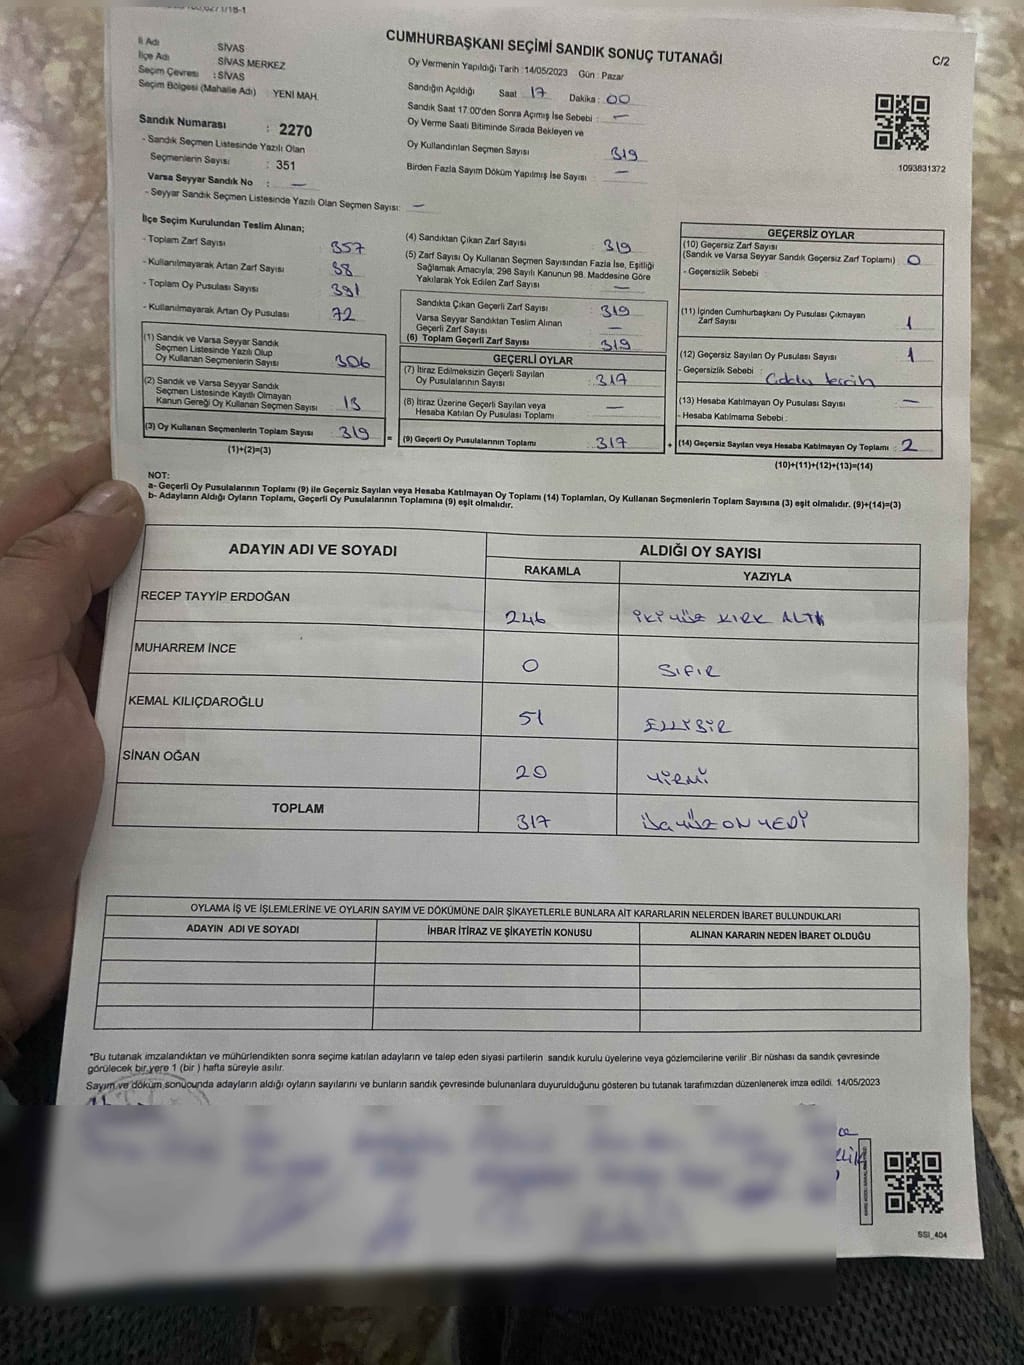 CUMHURBAŞKANI SEÇİMİ SANDIK SONUÇ TUTANAĞI
C/2
İl Adı SİVAS
İlçe Adı SİVAS MERKEZ
Seçim Çevresi : SİVAS
Seçim Bölgesi (Mahalle Adı) : YENİ MAH.
Sandık Numarası : 2270
- Sandık Seçmen Listesinde Yazılı Olan
Seçmenlerin Sayısı : 351
Varsa Seyyar Sandık No : —
- Seyyar Sandık Seçmen Listesinde Yazılı Olan Seçmen Sayısı: —
Oy Vermenin Yapıldığı Tarih :14/05/2023 Gün : Pazar
Sandığın Açıldığı Saat 17 Dakika : 00
Sandık Saat 17:00'den Sonra Açımış İse Sebebi : —
Oy Verme Saati Bitiminde Sırada Bekleyen ve
Oy Kullandırılan Seçmen Sayısı 319
Birden Fazla Sayım Döküm Yapılmış İse Sayısı : —
1093831372
İlçe Seçim Kurulundan Teslim Alınan;
- Toplam Zarf Sayısı 357
- Kullanılmayarak Artan Zarf Sayısı 38
- Toplam Oy Pusulası Sayısı 391
- Kullanılmayarak Artan Oy Pusulası 72
(1) Sandık ve Varsa Seyyar Sandık
Seçmen Listesinde Yazılı Olup
Oy Kullanan Seçmenlerin Sayısı 306
(2) Sandık ve Varsa Seyyar Sandık
Seçmen Listesinde Kayıtlı Olmayan
Kanun Gereği Oy Kullanan Seçmen Sayısı 13
(3) Oy Kullanan Seçmenlerin Toplam Sayısı 319
(1)+(2)=(3)
(4) Sandıktan Çıkan Zarf Sayısı 319
(5) Zarf Sayısı Oy Kullanan Seçmen Sayısından Fazla İse, Eşitliği
Sağlamak Amacıyla, 298 Sayılı Kanunun 98. Maddesine Göre
Yakılarak Yok Edilen Zarf Sayısı : —
Sandıkta Çıkan Geçerli Zarf Sayısı : 319
Varsa Seyyar Sandıktan Teslim Alınan
Geçerli Zarf Sayısı : —
(6) Toplam Geçerli Zarf Sayısı : 319
GEÇERLİ OYLAR
(7) İtiraz Edilmeksizin Geçerli Sayılan
Oy Pusulalarının Sayısı : 317
(8) İtiraz Üzerine Geçerli Sayılan veya
Hesaba Katılan Oy Pusulası Toplamı : —
= (9) Geçerli Oy Pusulalarının Toplamı : 317
GEÇERSİZ OYLAR
(10) Geçersiz Zarf Sayısı
(Sandık ve Varsa Seyyar Sandık Geçersiz Zarf Toplamı) : 0
- Geçersizlik Sebebi :
(11) İçinden Cumhurbaşkanı Oy Pusulası Çıkmayan
Zarf Sayısı : 1
(12) Geçersiz Sayılan Oy Pusulası Sayısı : 1
- Geçersizlik Sebebi :
(13) Hesaba Katılmayan Oy Pusulası Sayısı : —
- Hesaba Katılmama Sebebi :
+ (14) Geçersiz Sayılan veya Hesaba Katılmayan Oy Toplamı : 2
(10)+(11)+(12)+(13)=(14)
NOT:
a- Geçerli Oy Pusulalarının Toplamı (9) ile Geçersiz Sayılan veya Hesaba Katılmayan Oy Toplamı (14) Toplamları, Oy Kullanan Seçmenlerin Toplam Sayısına (3) eşit olmalıdır. (9)+(14)=(3)
b- Adayların Aldığı Oyların Toplamı, Geçerli Oy Pusulalarının Toplamına (9) eşit olmalıdır.
ADAYIN ADI VE SOYADI ALDIĞI OY SAYISI
RAKAMLA YAZIYLA
RECEP TAYYİP ERDOĞAN 246 İKİ YÜZ KIRK ALTI
MUHARREM İNCE 0 SIFIR
KEMAL KILIÇDAROĞLU 51 ELLİBİR
SİNAN OĞAN 20 YİRMİ
TOPLAM 317 ÜÇ YÜZ ON YEDİ
OYLAMA İŞ VE İŞLEMLERİNE VE OYLARIN SAYIM VE DÖKÜMÜNE DAİR ŞİKAYETLERLE BUNLARA AİT KARARLARIN NELERDEN İBARET BULUNDUKLARI
ADAYIN ADI VE SOYADI İHBAR İTİRAZ VE ŞİKAYETİN KONUSU ALINAN KARARIN NEDEN İBARET OLDUĞU
*Bu tutanak imzalandıktan ve mühürlendikten sonra seçime katılan adayların ve talep eden siyasi partilerin sandık kurulu üyelerine veya gözlemcilerine verilir .Bir nüshası da sandık çevresinde
görülecek bir yere 1 (bir ) hafta süreyle asılır.
Sayım ve döküm sonucunda adayların aldığı oyların sayılarını ve bunların sandık çevresinde bulunanlara duyurulduğunu gösteren bu tutanak tarafımızdan düzenlenerek imza edildi. 14/05/2023
SSI_404